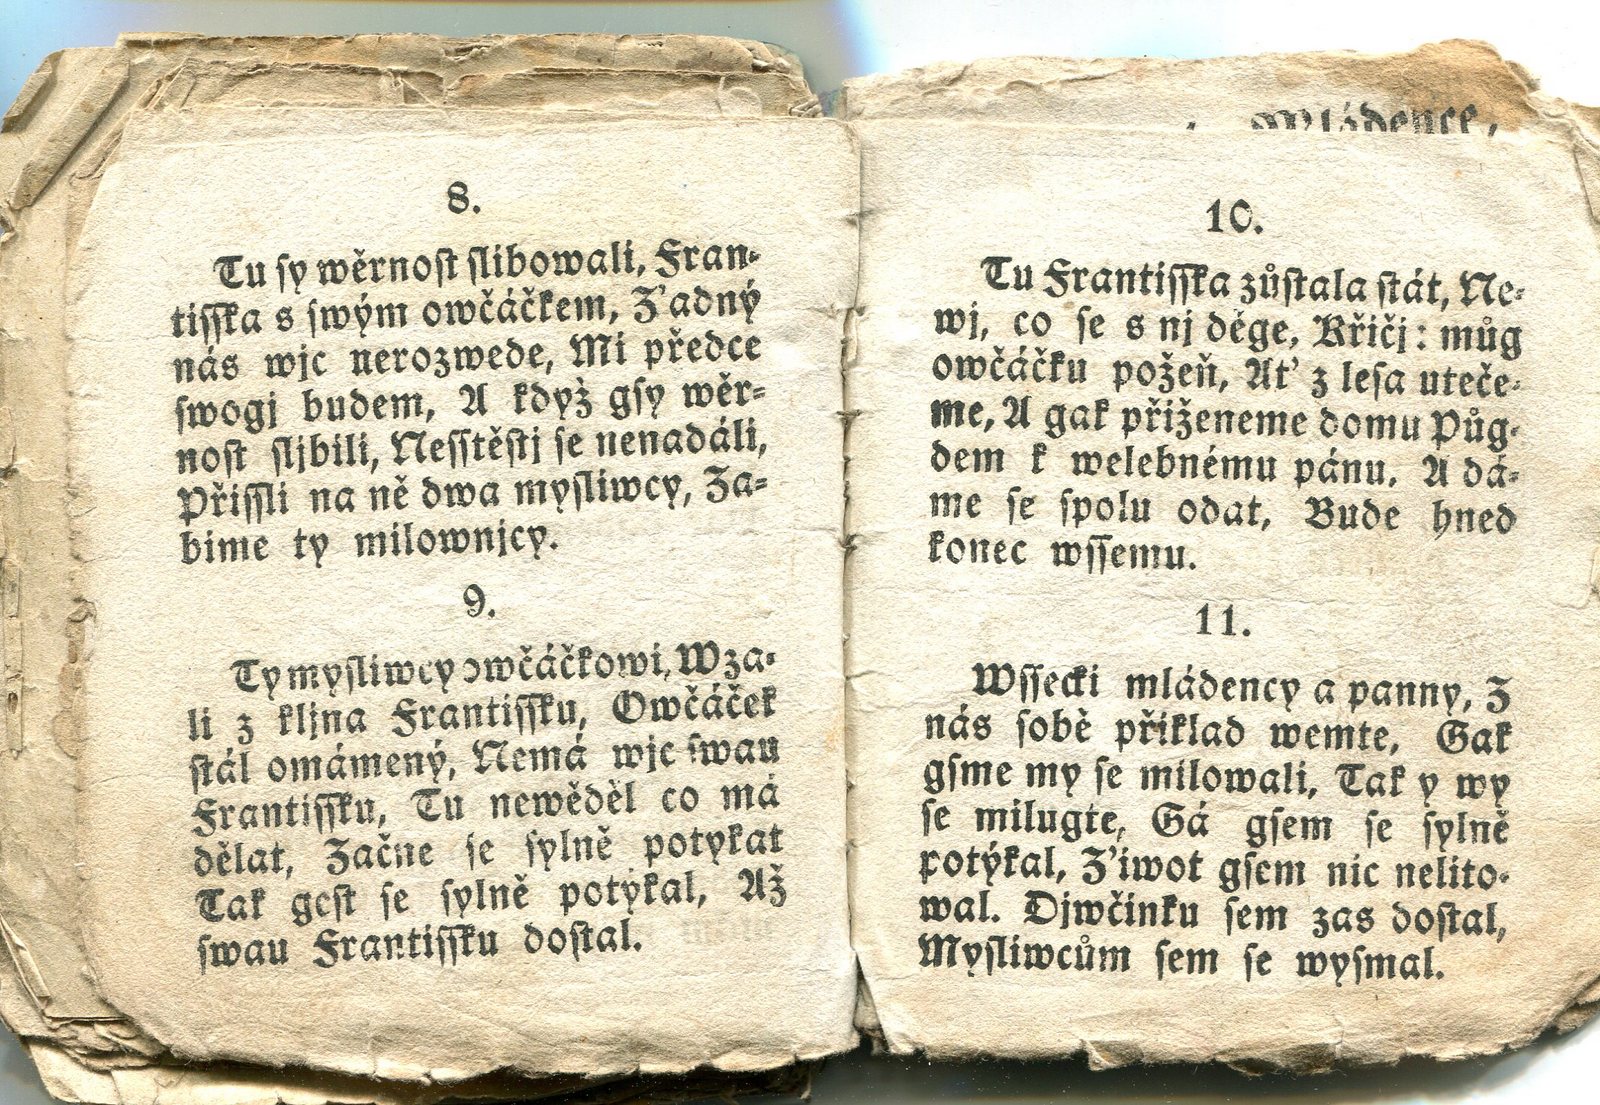 8.
Tu sy wěrnost slibowali, Fran-
tisska s swým owčáčkem, Z'adný
nás wjc nerozwede, Mi předce
swogj budem, A když gsy wěr-
nost sljbili, Nesstěstj se nenadáli,
Přissli na ně dwa mysliwcy, Za-
bime ty milownjcy.
9.
Ty mysliwcy owčáčkowi, Wza-
li z kljna Frantissku, Owčáček
stál omámený, Nemá wjc swau
Frantissku, Tu newěděl co má
dělat, Začne se sylně potykat
Tak gest se sylně potýkal, Až
swau Frantissku dostal.
mládence,
10.
Tu Frantisska zůstala stát, Ne-
wj, co se s nj děge, Křičj: můg
owčáčku požeň, At' z lesa uteče-
me, A gak přiženeme domu Půg-
dem k welebnému pánu. A dá-
me se spolu odat, Bude hned
konec wssemu.
11.
Wssecki mládency a panny, Z
nás sobě přiklad wemte, Gak
gsme my se milowali, Tak y wy
se milugte, Gá gsem se sylně
potýkal, Z'iwot gsem nic nelito-
wal. Djwčinku sem zas dostal,
Mysliwcům sem se wysmal.